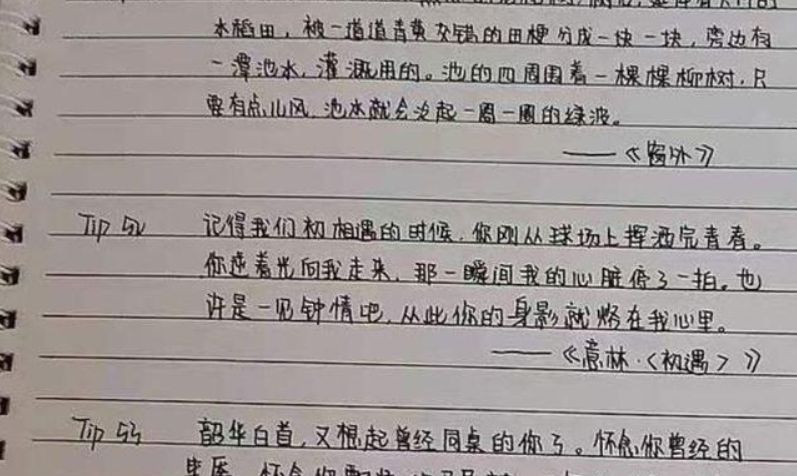 水稻田，被一道道青黄交错的田梗分成一块一块，旁边有
一潭池水，灌溉用的。池的四周围着一棵棵柳树，只
要有点儿风，池水就会泛起一圈一圈的绿波。
——《窗外》
Tip 52 记得我们初相遇的时候，你刚从球场上挥洒完青春。
你逆着光向我走来，那一瞬间我的心脏停了一拍。也
许是一见钟情吧，从此你的身影就烙在我心里。
——《意林·〈初遇〉》
Tip 53 韶华白首，又想起曾经同桌的你了。怀念你曾经的